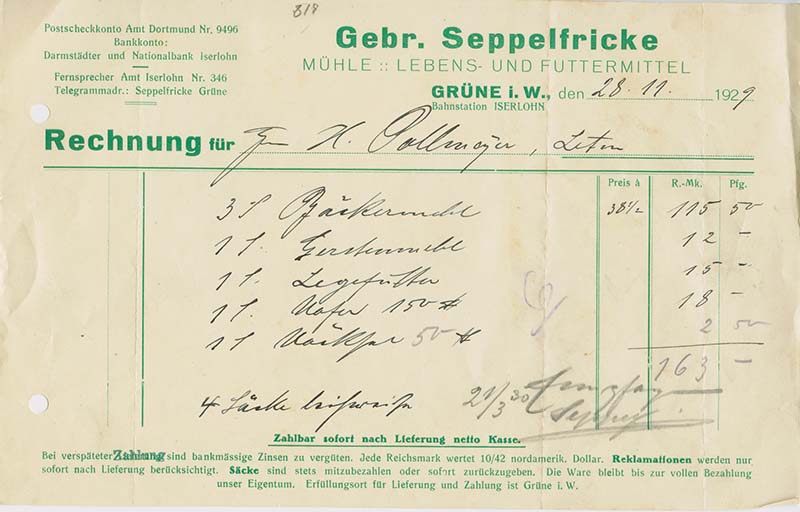 818
Postscheckkonto Amt Dortmund Nr. 9496
Bankkonto:
Darmstädter und Nationalbank iserlohn
Fernsprecher Amt Iserlohn Nr. 346
Telegrammadr.: Seppelfricke Grüne
Gebr. Seppelfricke
MÜHLE :: LEBENS- UND FUTTERMITTEL
GRÜNE i. W., den 28. 11. 1929
Bahnstation ISERLOHN
Rechnung für H. Pollmeyer,
Preis à R.-Mk. Pfg.
3 S Bäckermehl 38½ 115 50
1 S. Gerstenmehl 12 –
1 S. Legefutter 15 –
1 S. Hafer 150 # 18 –
1 S 50 # 2 50
163 –
4 Säcke leihweise 21/3 30
Zahlbar sofort nach Lieferung netto Kasse.
Bei verspäteter Zahlung sind bankmässige Zinsen zu vergüten. Jede Reichsmark wertet 10/42 nordamerik. Dollar. Reklamationen werden nur
sofort nach Lieferung berücksichtigt. Säcke sind stets mitzubezahlen oder sofort zurückzugeben. Die Ware bleibt bis zur vollen Bezahlung
unser Eigentum. Erfüllungsort für Lieferung und Zahlung ist Grüne i. W.